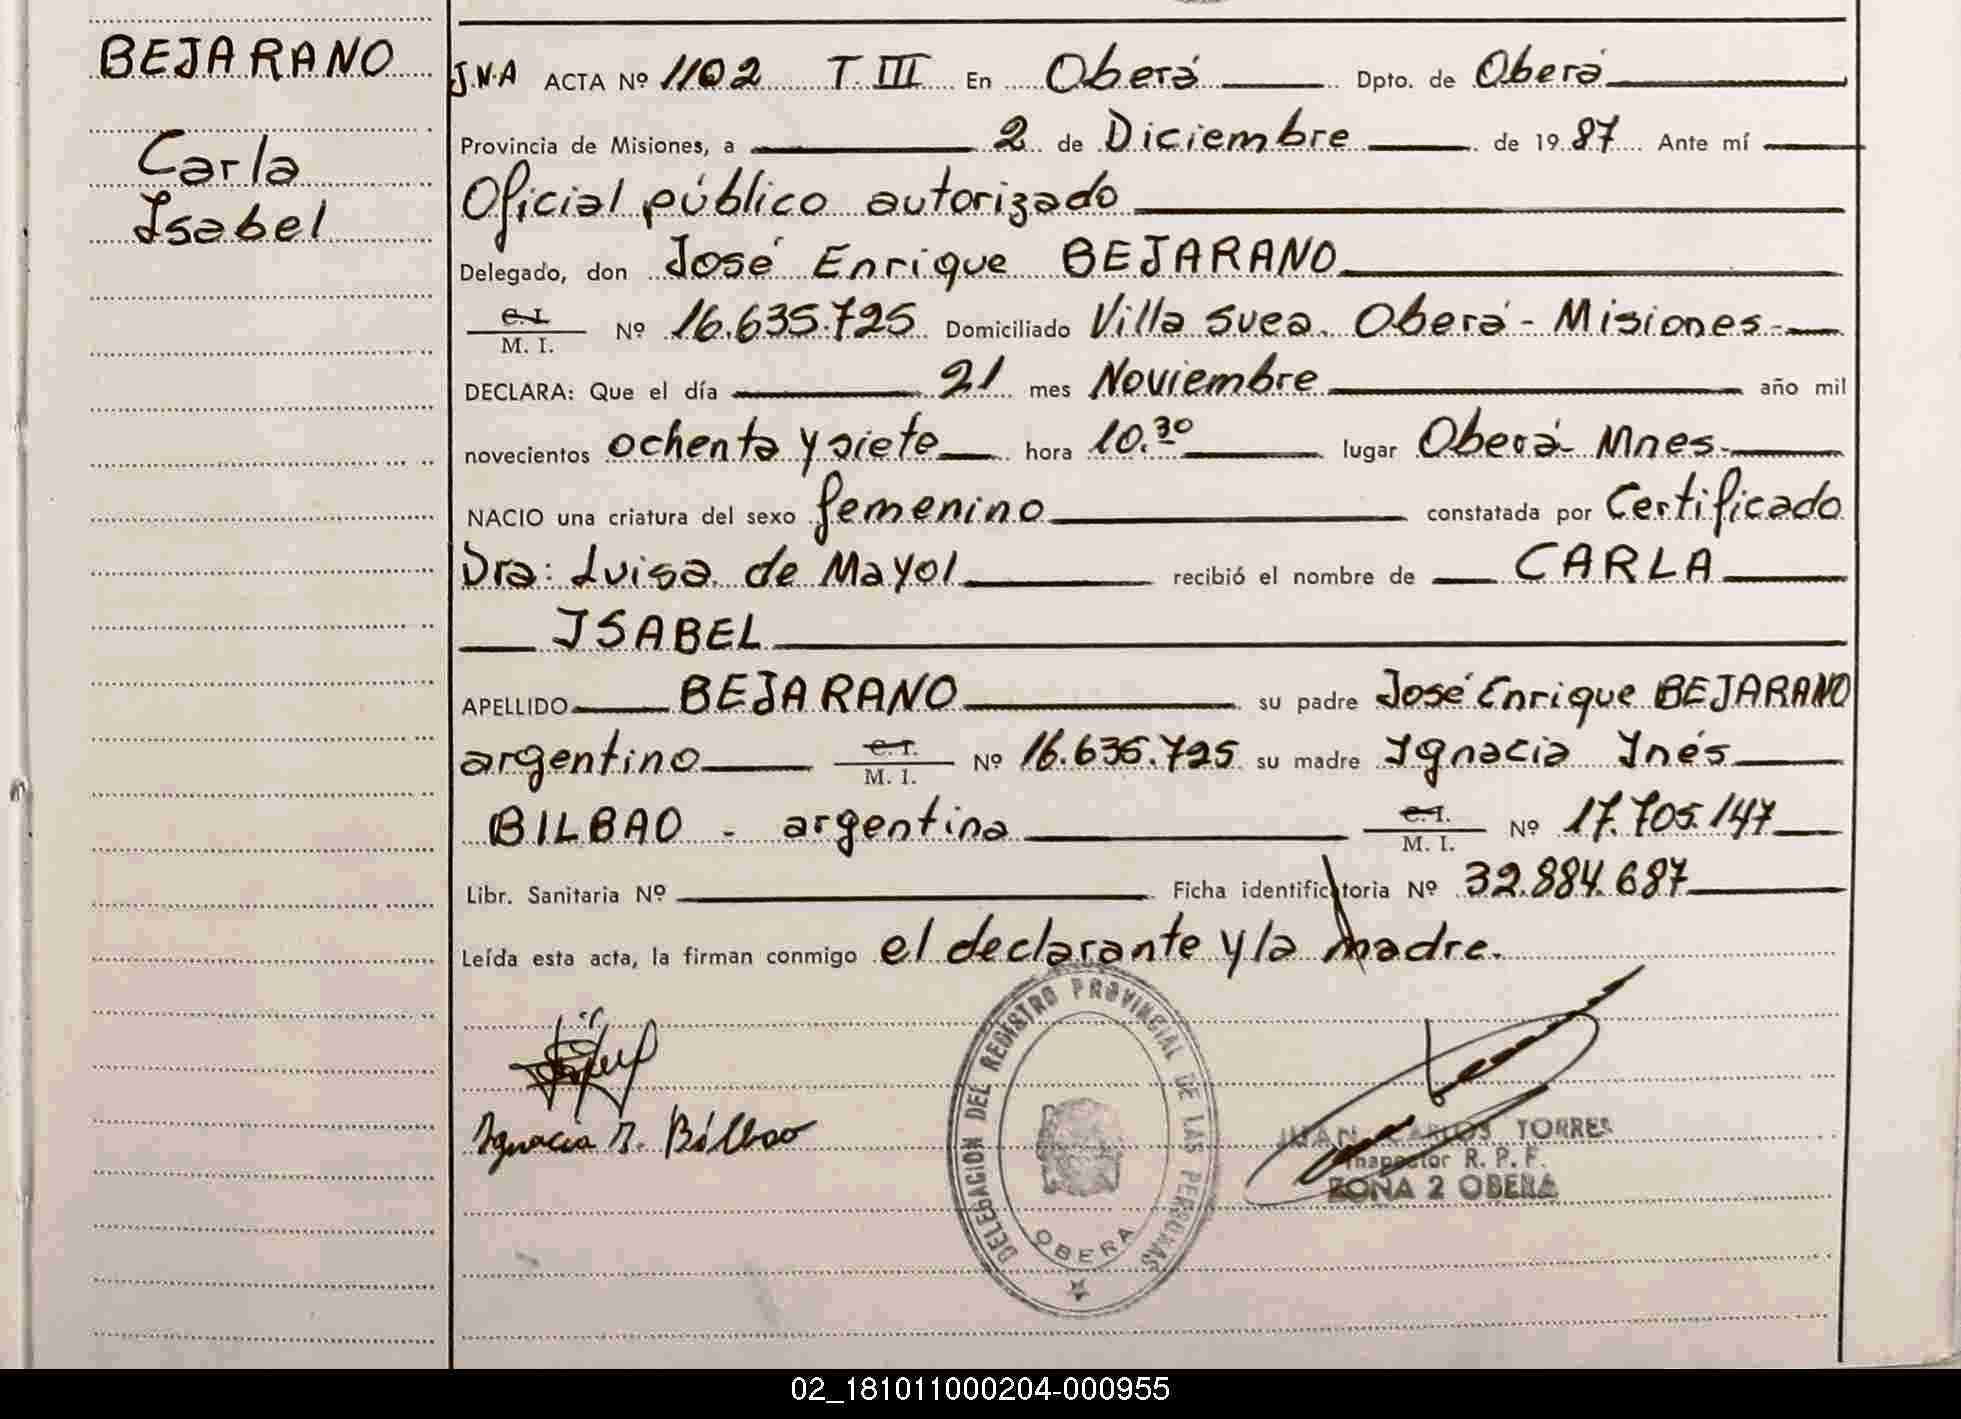 BEJARANO
Carla
Isabel
J.V.A ACTA Nº 1102 T. III En Oberá Dpto. de Oberá
Provincia de Misiones, a 2 de Diciembre de 1987 Ante mí
Oficial público autorizado
Delegado, don José Enrique BEJARANO
C. I.
M. I.
Nº 16.635.725 Domiciliado Villa Svea. Oberá - Misiones -
DECLARA: Que el día 21 mes Noviembre año mil
novecientos ochenta y siete hora 10.30 lugar Oberá - Mnes -
NACIO una criatura del sexo femenino constatada por Certificado
Dra: Luisa de Mayol recibió el nombre de CARLA
ISABEL
APELLIDO BEJARANO su padre José Enrique BEJARANO
argentino C. I.
M. I.
Nº 16.635.725 su madre Ignacia Inés
BILBAO - argentina C. I.
M. I.
Nº 17.705.147
Libr. Sanitaria Nº Ficha identificatoria Nº 32.884.687
Leída esta acta, la firman conmigo el declarante y la madre.
Ignacia I. Bilbao
DELEGACION DEL REGISTRO PROVINCIAL DE LAS PERSONAS
OBERA
JUAN CARLOS TORRES
Inspector R. P. P.
ZONA 2 OBERÁ
02_181011000204-000955